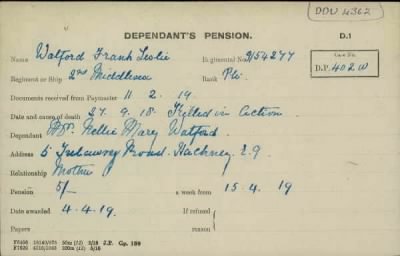 DDU 4362
DEPENDANT'S PENSION.
D.1
Name Watford Frank Leslie Regimental No. 9/54277
Case No.
D.P. 402 W
Regiment or Ship 2nd Middlesex Rank Pte.
Documents received from Paymaster 11.2.19
Date and cause of death 27.9.18. Killed in Action
Dependant Mrs. Nellie Mary Watford.
Address 5 Road. Hackney. E.9
Relationship Mother
Pension 5/- a week from 15.4.19
Date awarded 4.4.19. If refused
Papers reason
J.P. Gp. 139